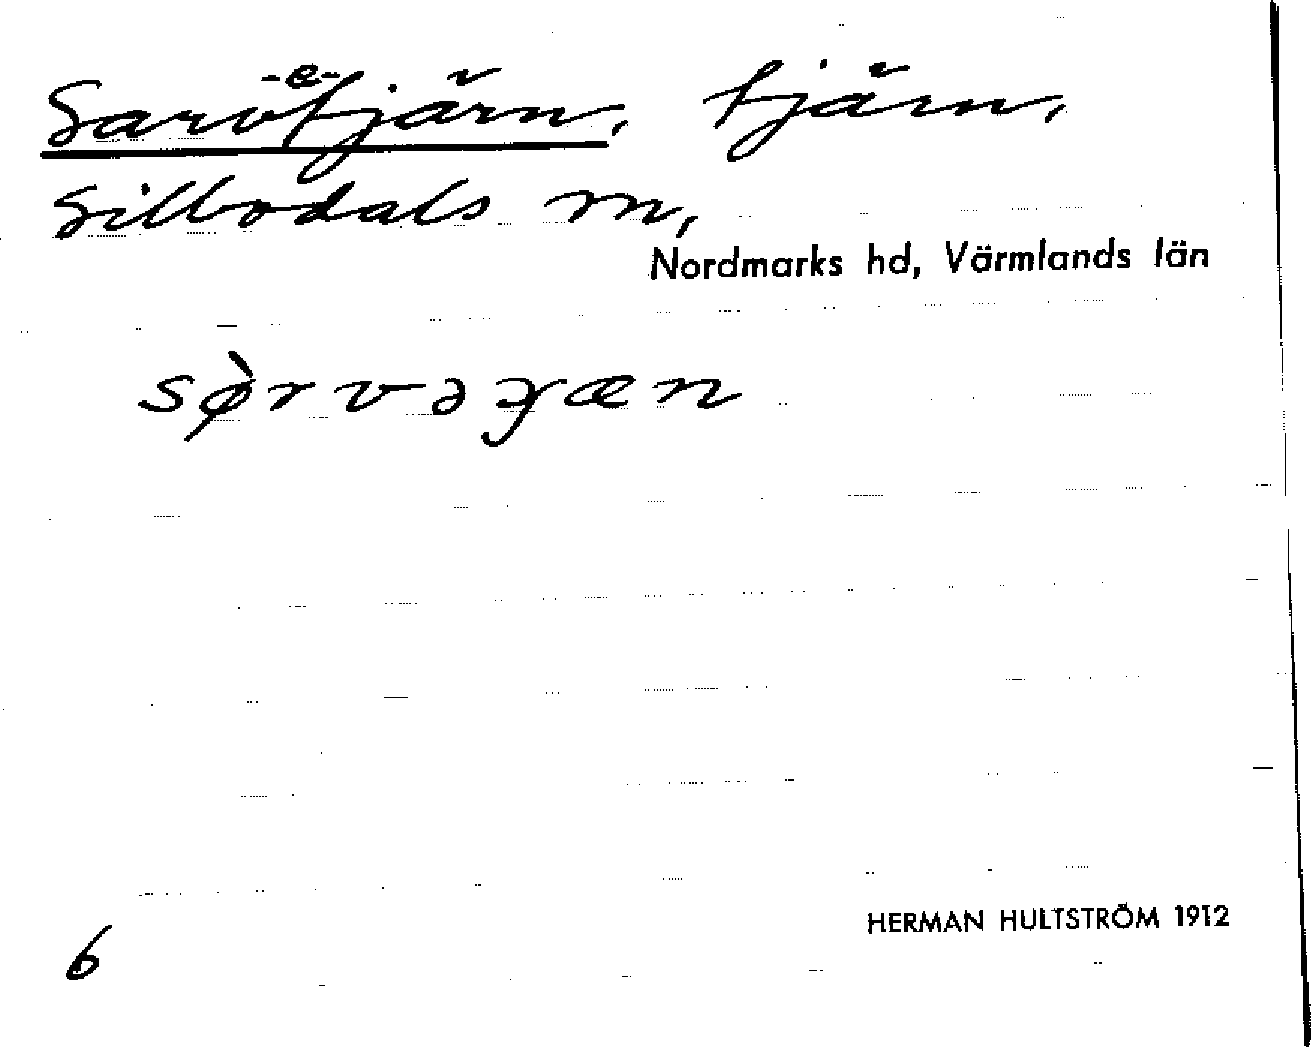 -e-
Sarvötjärn, tjärn,
Sillbodals sn,
Nordmarks hd, Värmlands län
sø̀rvəɟæn
6
HERMAN HULTSTRÖM 1912